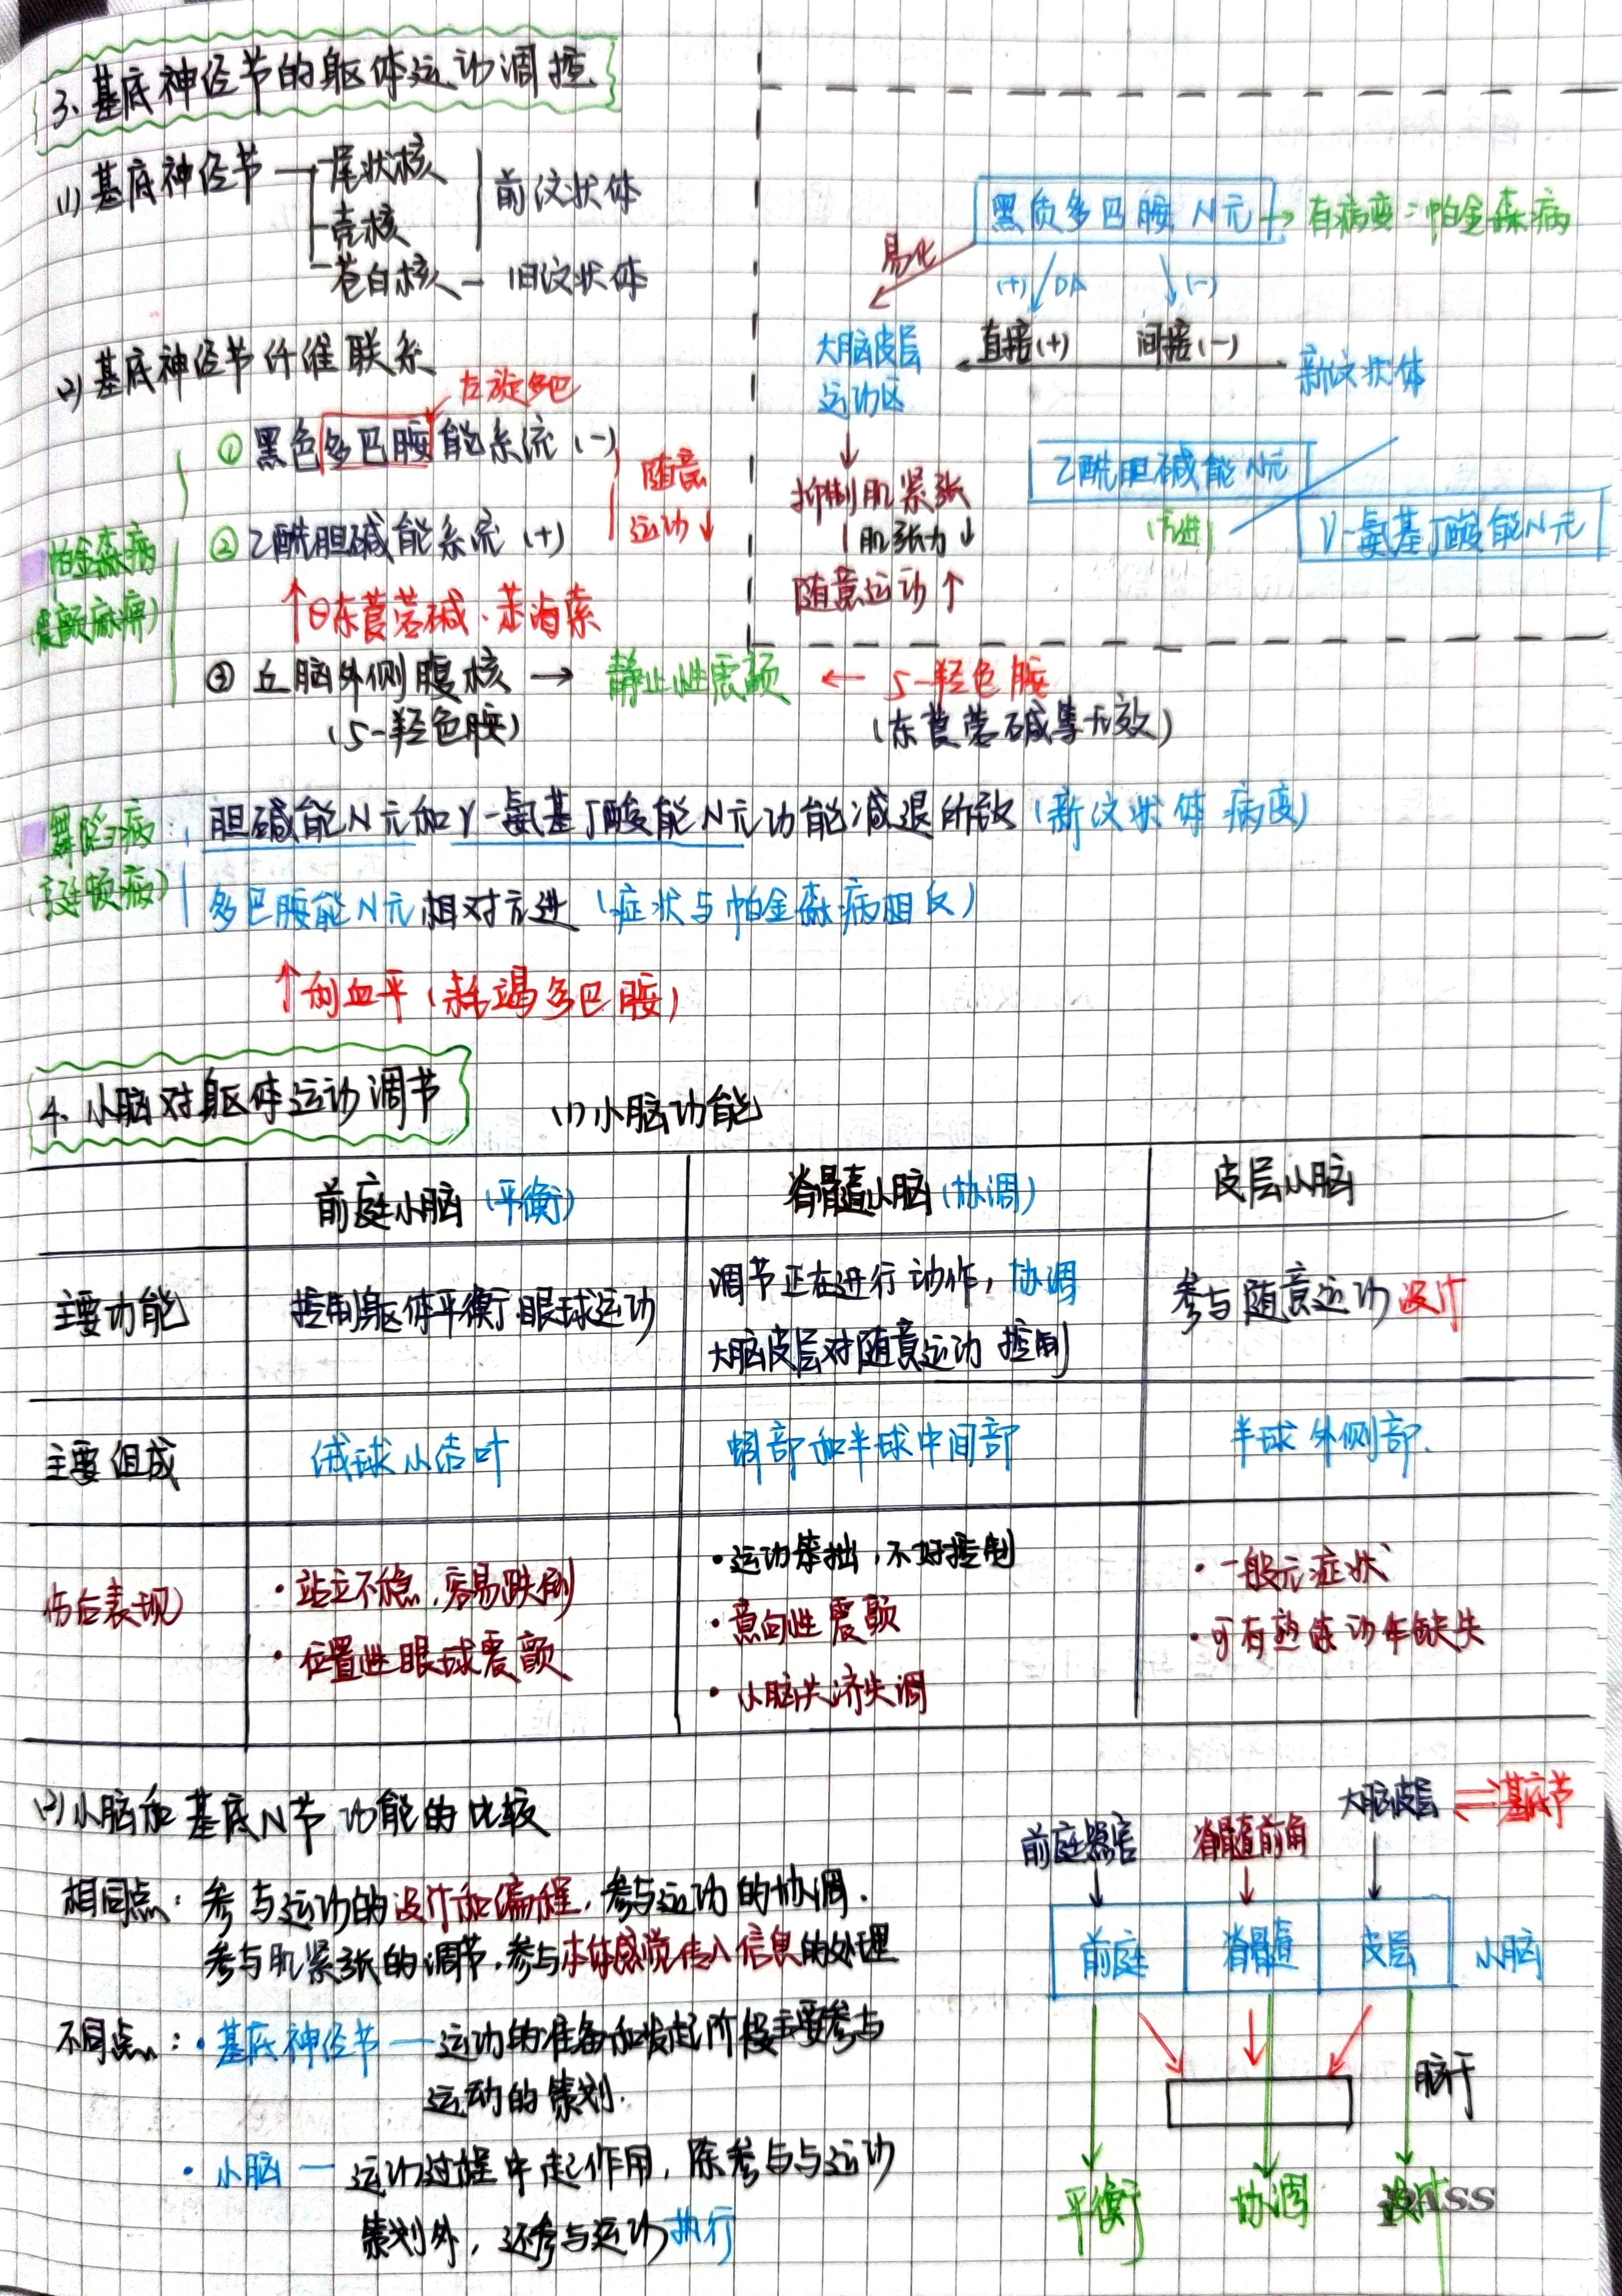 3、基底神经节的躯体运动调控
(1)基底神经节
尾状核
壳核
前纹状体
苍白核 — 旧纹状体
(2)基底神经节纤维联系
左旋多巴
① 黑色多巴胺能系统 (-)
② 乙酰胆碱能系统 (+)
随意
运动↓
帕金森病
(震颤麻痹)
↑⊖东莨菪碱、苯海索
③ 丘脑外侧腹核 → 静止性震颤 ← 5-羟色胺
(5-羟色胺)
(东莨菪碱等无效)
黑质多巴胺N元 → 有病变:帕金森病
易化
(+) DA
(-)
大脑皮层
运动区
直接(+) 间接(-)
新纹状体
↓
抑制肌紧张
肌张力↓
随意运动↑
乙酰胆碱能N元
(亢进)
γ-氨基丁酸能N元
舞蹈病
(亨廷顿病)
胆碱能N元和γ-氨基丁酸能N元功能减退所致(新纹状体病变)
多巴胺能N元相对亢进 (症状与帕金森病相反)
↑利血平(耗竭多巴胺)
4、小脑对躯体运动调节
(1)小脑功能
前庭小脑 (平衡) 脊髓小脑(协调) 皮层小脑
主要功能
控制躯体平衡、眼球运动
调节正在进行动作,协调
大脑皮层对随意运动控制
参与随意运动设计
主要组成 绒球小结叶 蚓部和半球中间部 半球外侧部.
伤后表现
·站立不稳,容易跌倒
·位置性眼球震颤
·运动笨拙,不好控制
·意向性震颤
·小脑共济失调
·一般无症状
·可有熟练动作缺失
(2)小脑和基底N节功能的比较
相同点:参与运动的设计和编程,参与运动的协调.
参与肌紧张的调节,参与本体感觉传入信息的处理
不同点:·基底神经节 — 运动的准备和发起阶段主要参与
运动的策划.
·小脑 — 运动过程中起作用,除参与与运动
策划外,还参与运动执行
大脑皮层 ⇌ 基底节
前庭器官 脊髓前角
前庭 脊髓 皮层 小脑
脑干
平衡 协调 设计
PASS